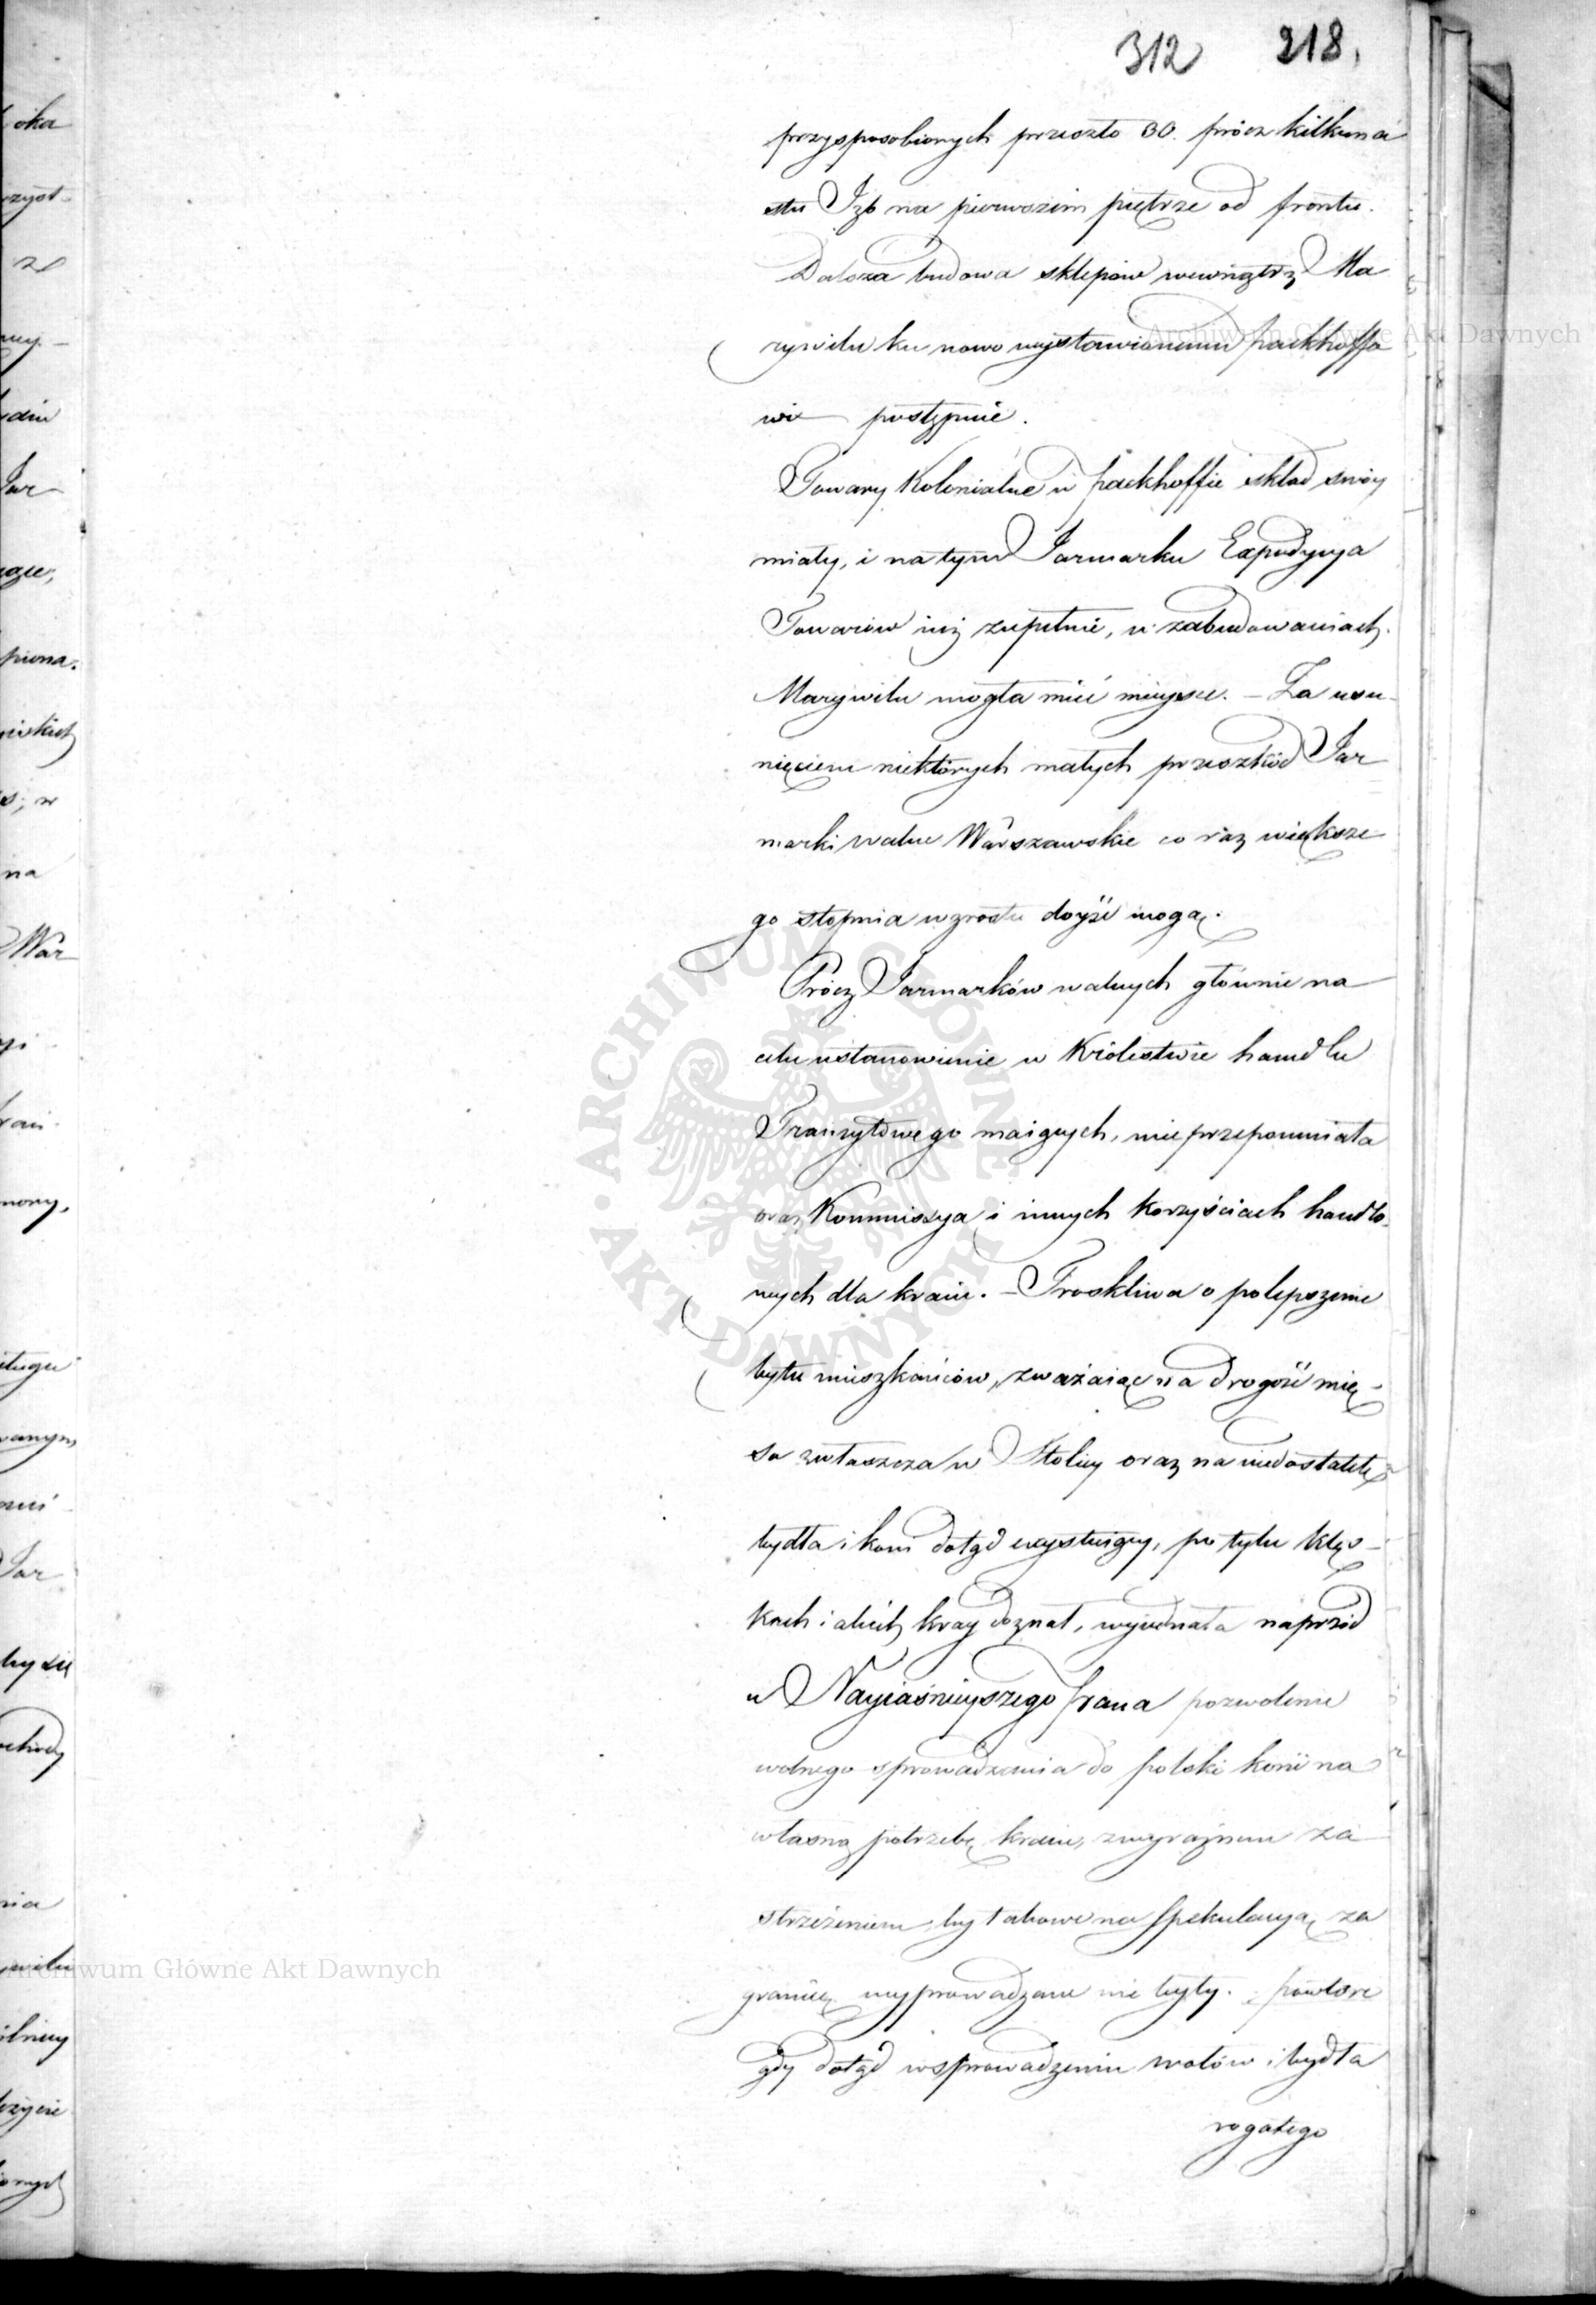 312 218.
przysposobionych przeszło 30. prócz kilkuna
stu Izb na pierwszim piętrze od frontu.
Dalsza budowa sklepów wewnątrz Ma
rywilu ku nowo wystawionemu packhoffo
wi postępuie.
Towary Kolonialne w packhoffie skład swóy
miały, i na tym Jarmarku Expedycya
Towarów iuż zupełnie, w zabudowaniach
Marywilu mogła mieć mieysce. – Za usu-
nięciem niektórych małych przeszkód Jar
marki walne Warszawskie co raz większe
go stopnia wzrostu doyść mogą.
Prócz Jarmarków walnych głównie na
celu ustanowienie w Królestwie handlu
Tranzytowego maiących, nie przepomniała
oraz Kommissya i innych korzyściach handlo-
wych dla kraiu. – Troskliwa o polepszenie
bytu mieszkańców, zważaiąc na drogość mię-
sa zwłaszcza w Stolicy oraz na niedostatek
bydła i koni dotąd wystuigcy, po tylu klęs-
kach iakich kray doznał, wyiednała naprzód
u Nayiaśnieyszego Pana pozwolenie
wolnego sprowadzenia do polski koni na
własną potrzebę kraiu, z wyraźnem za
strzeżeniem, by takowe na spekulacyą za
granicę wyprowadzane nie były. powtóre
gdy dotąd w sprowadzeniu wołów i bydła
rogatego
Archiwum Główne Akt Dawnych
ARCHIWUM GŁÓWNE · AKT DAWNYCH ·
Archiwum Główne Akt Dawnych